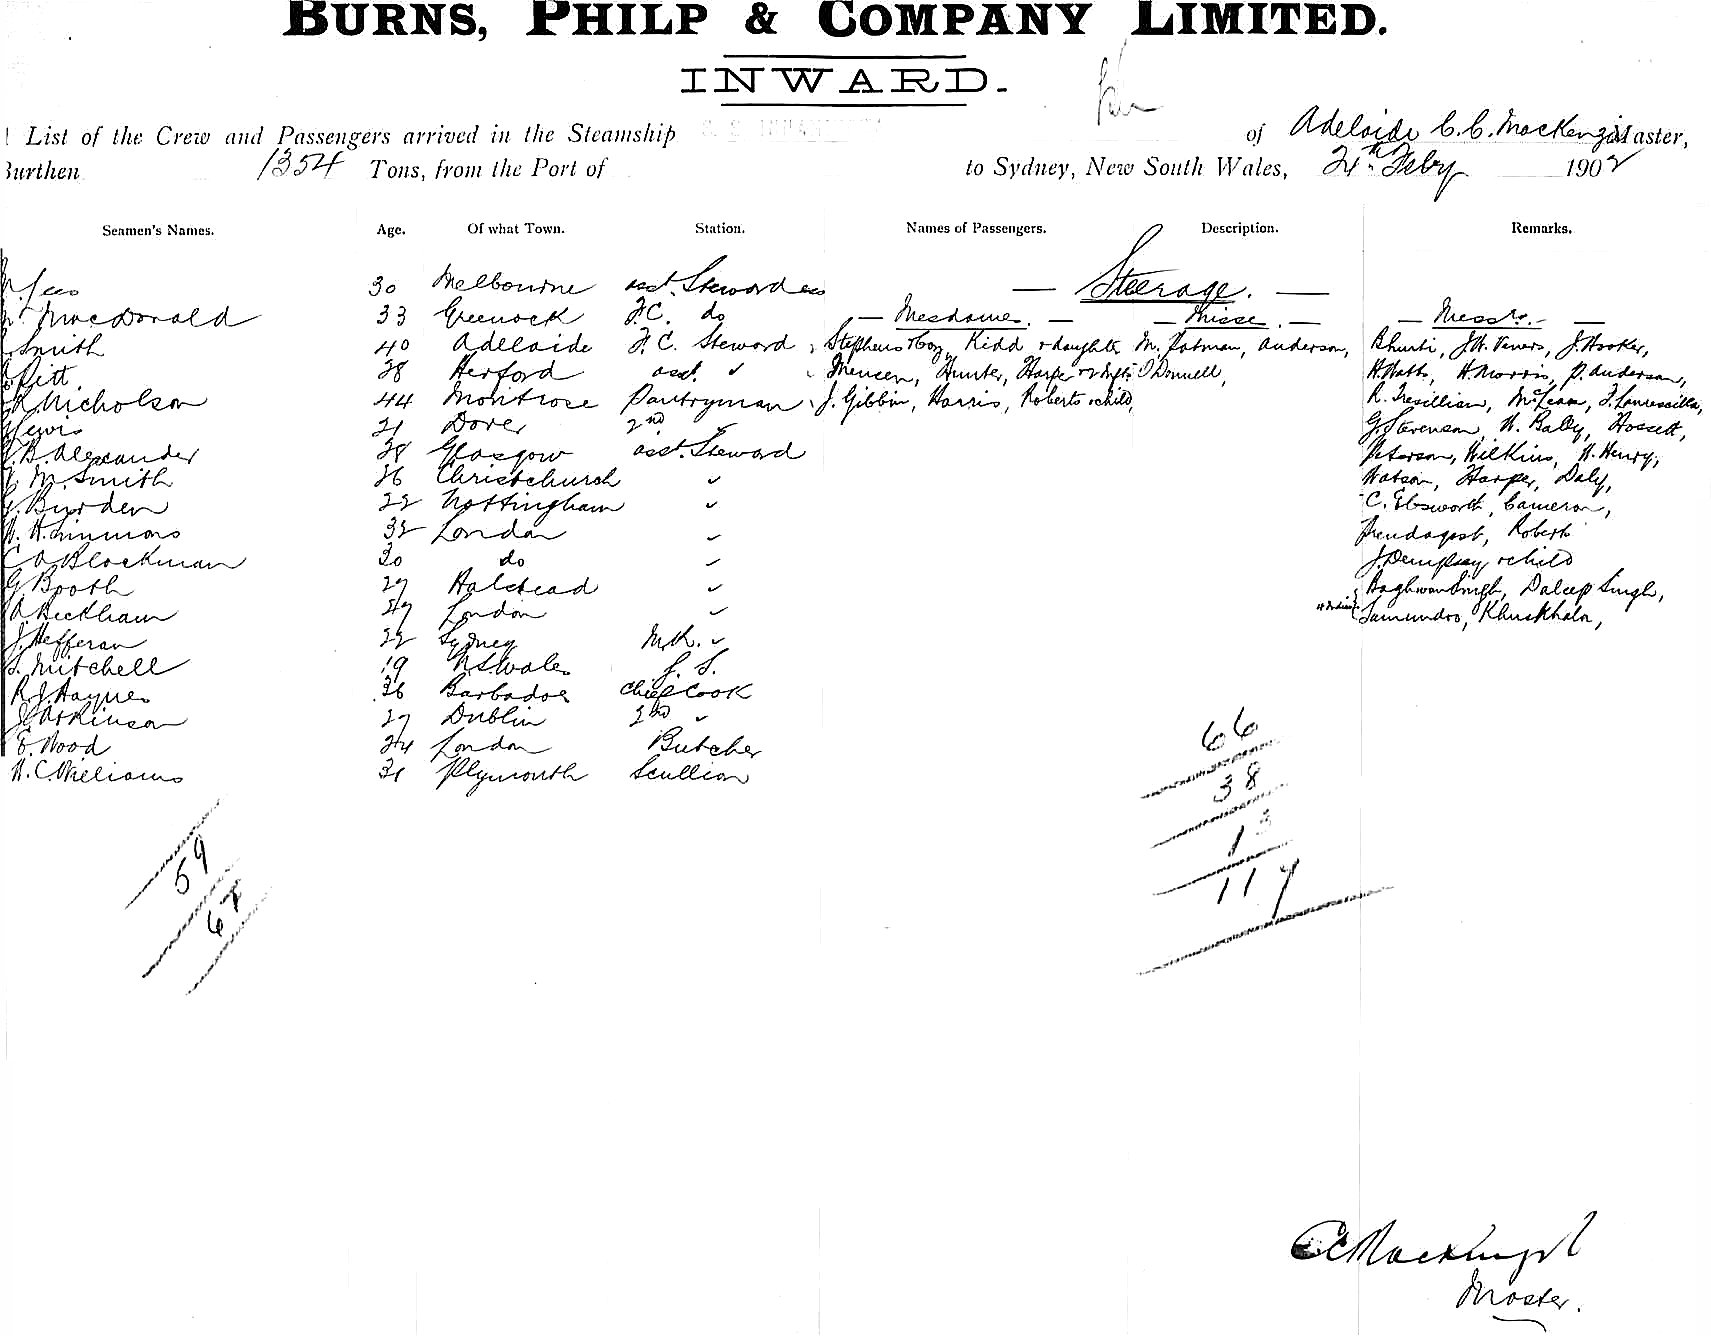 BURNS, PHILP & COMPANY LIMITED.
INWARD.
List of the Crew and Passengers arrived in the Steamship of Adelaide C.C. MacKenzie Master,
Burthen 1354 Tons, from the Port of to Sydney, New South Wales, 24th Feby 1902
Seamen's Names. Age. Of what Town. Station. Names of Passengers. Description. Remarks.
Lees 30 Melbourne asst. Stewardess — Steerage. —
MacDonald 33 Greenock F.C. do — Mesdames. — — Misses. — — Messrs. —
Smith 40 Adelaide F.C. Steward Stephens & boy, Kidd & daughter M. Patman, Anderson, Bhurti, J.W. Veners, J. Hooker,
Pitt 28 Herford asst. " Mencen, Hunter, Harper & O'Donnell, H. Watts, H. Morris, P. Anderson,
Nicholson 44 Montrose Pantryman J. Gibbin, Harris, Roberts & child, R. Tresillian, McLean,
Lewis 21 Dover 2nd G. Stevenson, Hossett,
B. Alexander 28 Glasgow asst. Steward Peterson, Wilkins, H. Henry,
M. Smith 26 Christchurch " Watson, Harper, Daly,
G. Burden 22 Nottingham " C. Ebsworth, Cameron,
H. Simmons 32 London " Prendagast, Roberts
C A Blackman 30 do " J. Dempsey & child
G Booth 27 Halstead " Baghwan Singh, Daleep Singh,
A. Beckham 27 London " Samundro,
J. Hefferan 22 Sydney M.R. "
S. Mitchell 19 N.S. Wales
R.J. Haynes 36 Barbados Chief Cook
J. Atkinson 27 Dublin 2nd "
E. Wood 24 London Butcher
H. C. Williams 31 Plymouth Scullion
66
38
13
117
59
67
CC Mackenzie
Master.